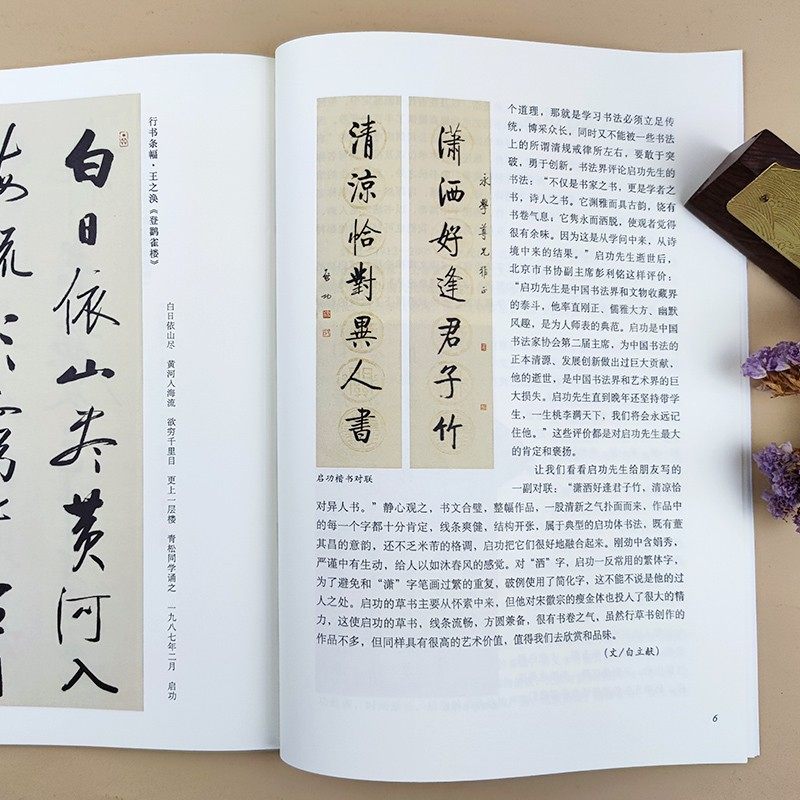 白日依山尽黄河入
海流
行书条幅·王之涣《登鹳雀楼》
白日依山尽 黄河入海流 欲穷千里目 更上一层楼 青松同学诵之 一九八七年二月 启功
永学尊兄雅正
潇洒好逢君子竹
清凉恰對異人書
启功
启功楷书对联
个道理，那就是学习书法必须立足传
统，博采众长，同时又不能被一些书法
上的所谓清规戒律所左右，要敢于突
破，勇于创新。书法界评论启功先生的
书法：“不仅是书家之书，更是学者之
书，诗人之书。它渊雅而具古韵，饶有
书卷气息；它隽永而洒脱，使观者觉得
很有余味。因为这是从学问中来，从诗
境中来的结果。”启功先生逝世后，
北京市书协副主席彭利铭这样评价：
“启功先生是中国书法界和文物收藏界
的泰斗，他率直刚正、儒雅大方、幽默
风趣，是为人师表的典范。启功是中国
书法家协会第二届主席，为中国书法的
正本清源、发展创新做出过巨大贡献，
他的逝世，是中国书法界和艺术界的巨
大损失。启功先生直到晚年还坚持带学
生，一生桃李满天下，我们将会永远记
住他。”这些评价都是对启功先生最大
的肯定和褒扬。
让我们看看启功先生给朋友写的
一副对联：“潇洒好逢君子竹，清凉恰
对异人书。”静心观之，书文合璧，整幅作品，一股清新之气扑面而来，作品中
的每一个字都十分肯定，线条爽健，结构开张，属于典型的启功体书法，既有董
其昌的意韵，还不乏米芾的格调，启功把它们很好地融合起来。刚劲中含娟秀，
严谨中有生动，给人以如沐春风的感觉。对“洒”字，启功一反常用的繁体字，
为了避免和“潇”字笔画过繁的重复，破例使用了简化字，这不能不说是他的过
人之处。启功的草书主要从怀素中来，但他对宋徽宗的瘦金体也投入了很大的精
力，这使启功的草书，线条流畅，方圆兼备，很有书卷之气，虽然行草书创作的
作品不多，但同样具有很高的艺术价值，值得我们去欣赏和品味。
（文/白立献）
6